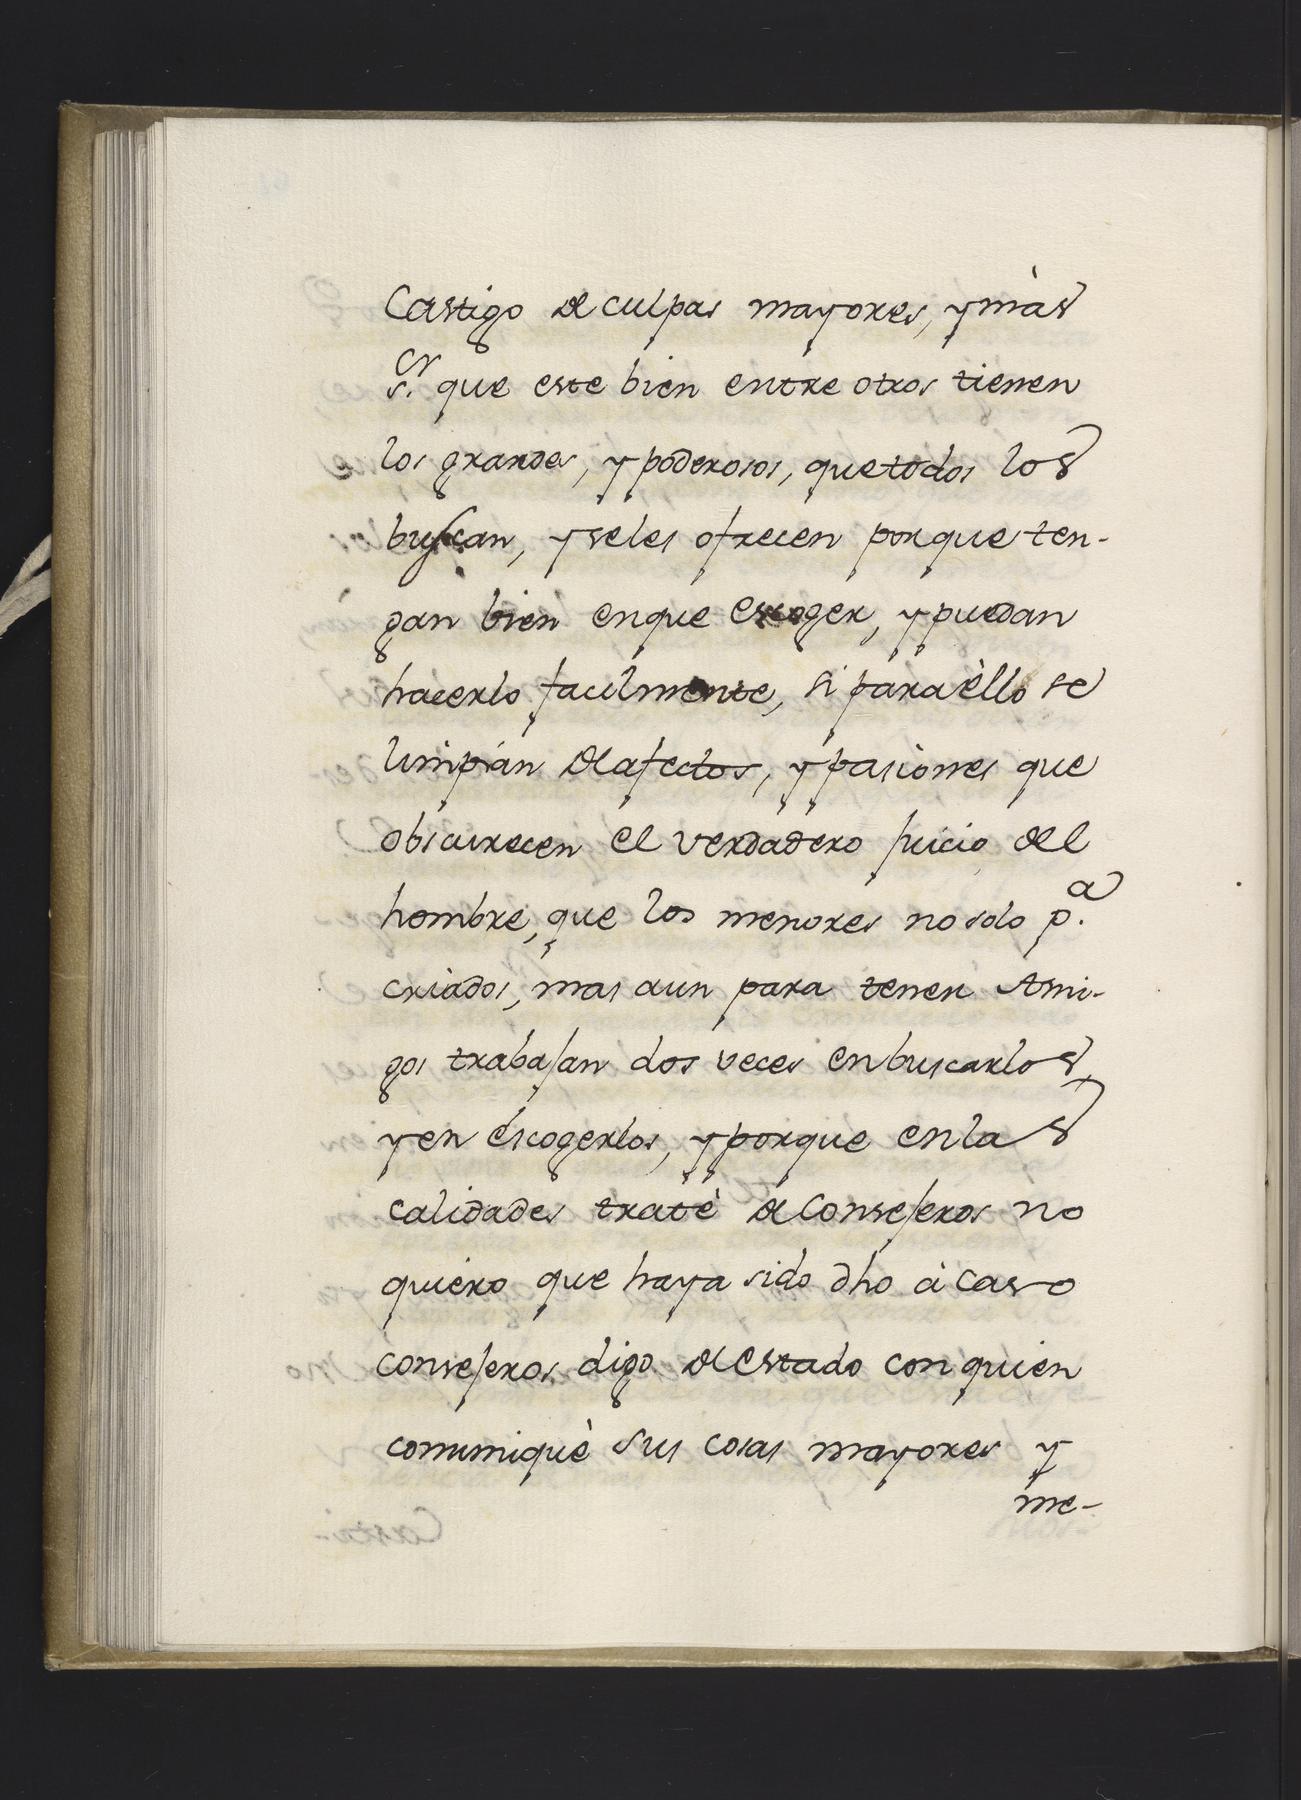 Castigo de culpas mayores, y màs
S.ºʳ que este bien entre otros tienen
los grandes, y poderosos, que todos los
buscan, y seles ofrecen porque ten-
gan bien enque escoger, y puedan
hacerlo facilmente, si para èllo se
limpian de afectos, y pasiones que
obscurecen el verdadero juicio del
hombre, que los menores no solo p.ª
criados, mas aun para tener Ami-
gos trabajan dos veces enbuscarlos,
y en escogerlos, y porque en las
calidades tratè de Consejeros no
quiero que haya sido dho à caso
consejeros digo de estado con quien
comuniquè sus cosas mayores y
me-